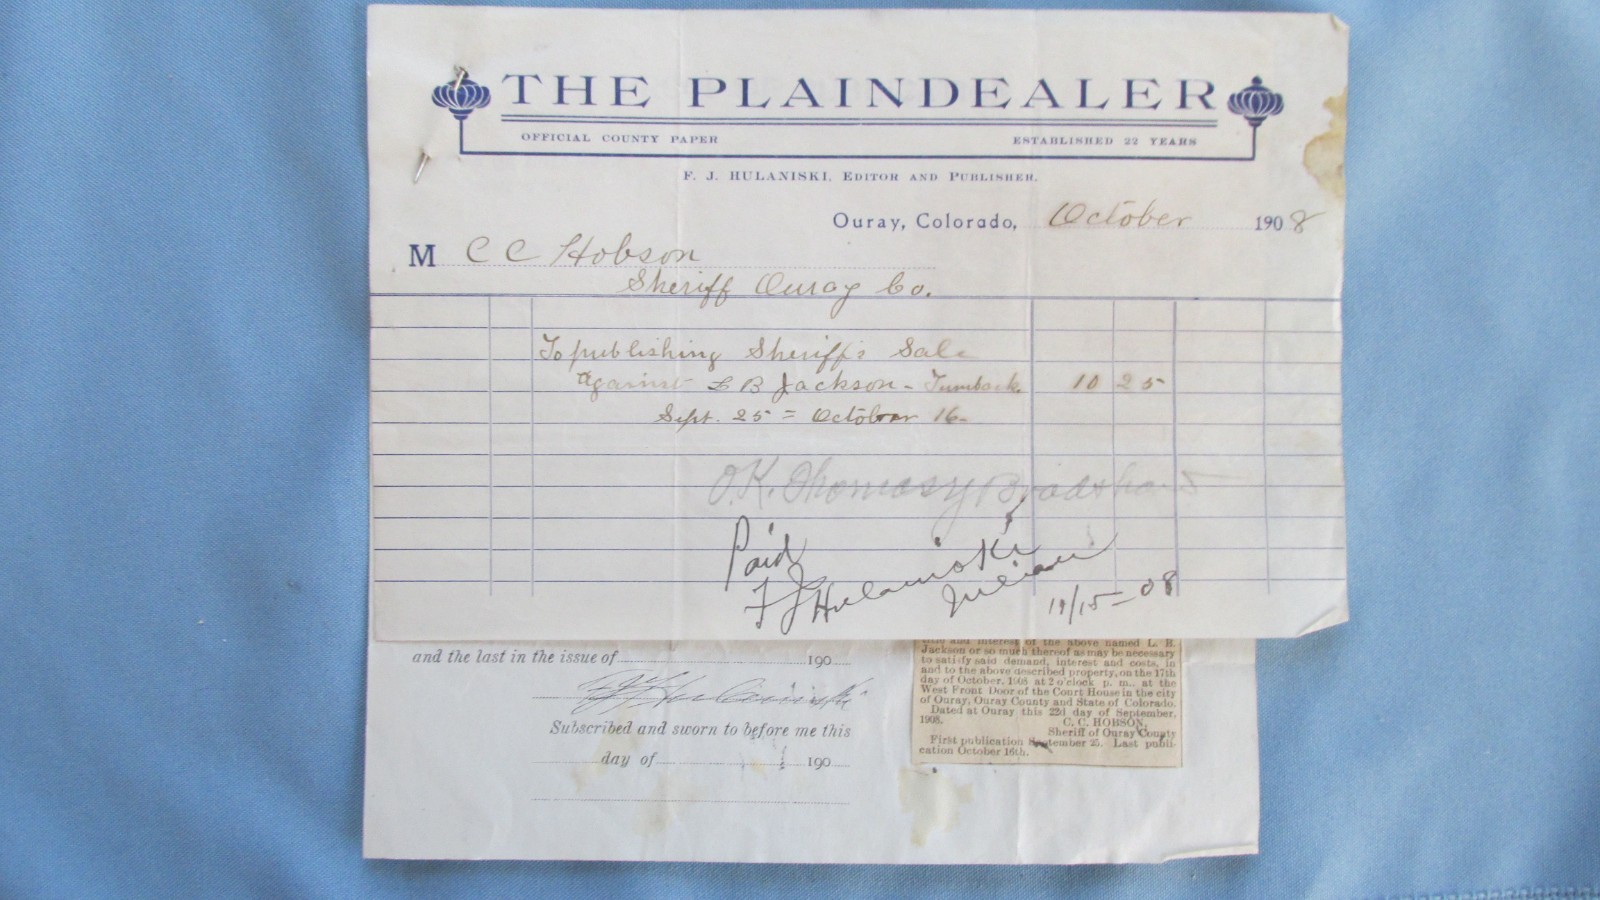 THE PLAINDEALER
OFFICIAL COUNTY PAPER ESTABLISHED 22 YEARS
F. J. HULANISKI, EDITOR AND PUBLISHER.
Ouray, Colorado, October 1908
M C C Hobson
Sheriff Ouray Co.
To publishing Sheriff's Sale
against L B Jackson - 10 25
Sept. 25 = October 16-
O.K. Bradshaw
Paid
F J Hulaniski
11/15-08
and the last in the issue of 190
F J Hulaniski
Subscribed and sworn to before me this
day of 190
and interest of the above named L. B.
Jackson or so much thereof as may be necessary
to satisfy said demand, interest and costs, in
and to the above described property, on the 17th
day of October, 1908 at 2 o'clock p. m., at the
West Front Door of the Court House in the city
of Ouray, Ouray County and State of Colorado.
Dated at Ouray this 22d day of September,
1908. C. C. HOBSON,
Sheriff of Ouray County
First publication September 25. Last publi-
cation October 16th.